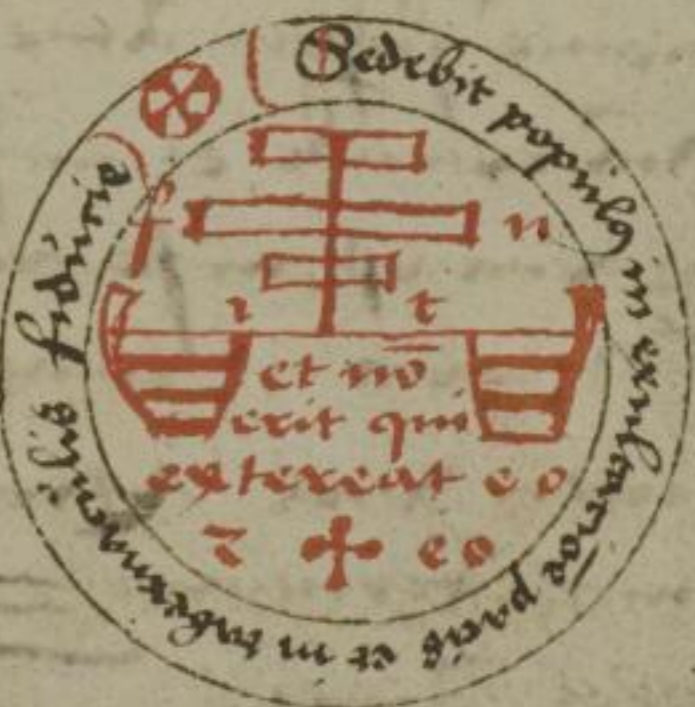 Sedebit populus in exultacōe pacis et in tabernaculis fiducie
f n
i t
et nō
erit qui
extereat eo
⁊ ✠ eo